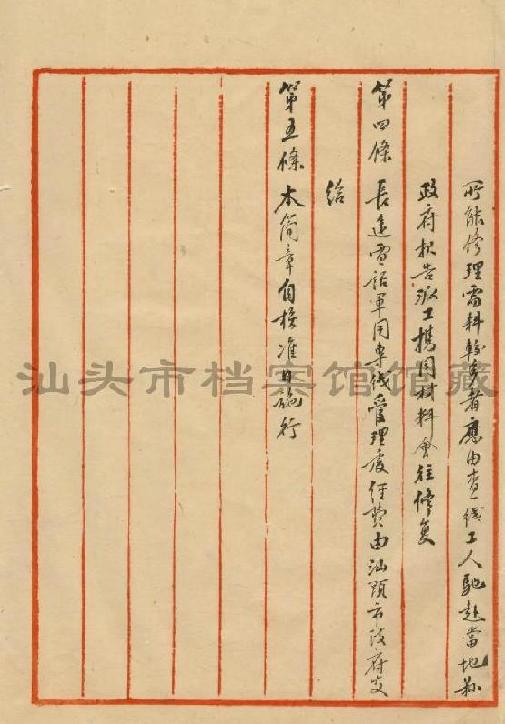 所能修理需料較多者應由查線工人馳赴當地縣
政府報告派工携同材料會往修复
第四條 長途電話軍用專線管理處經費由汕頭市政府支
給
第五條 本簡章自核准日施行
汕头市档案馆馆藏